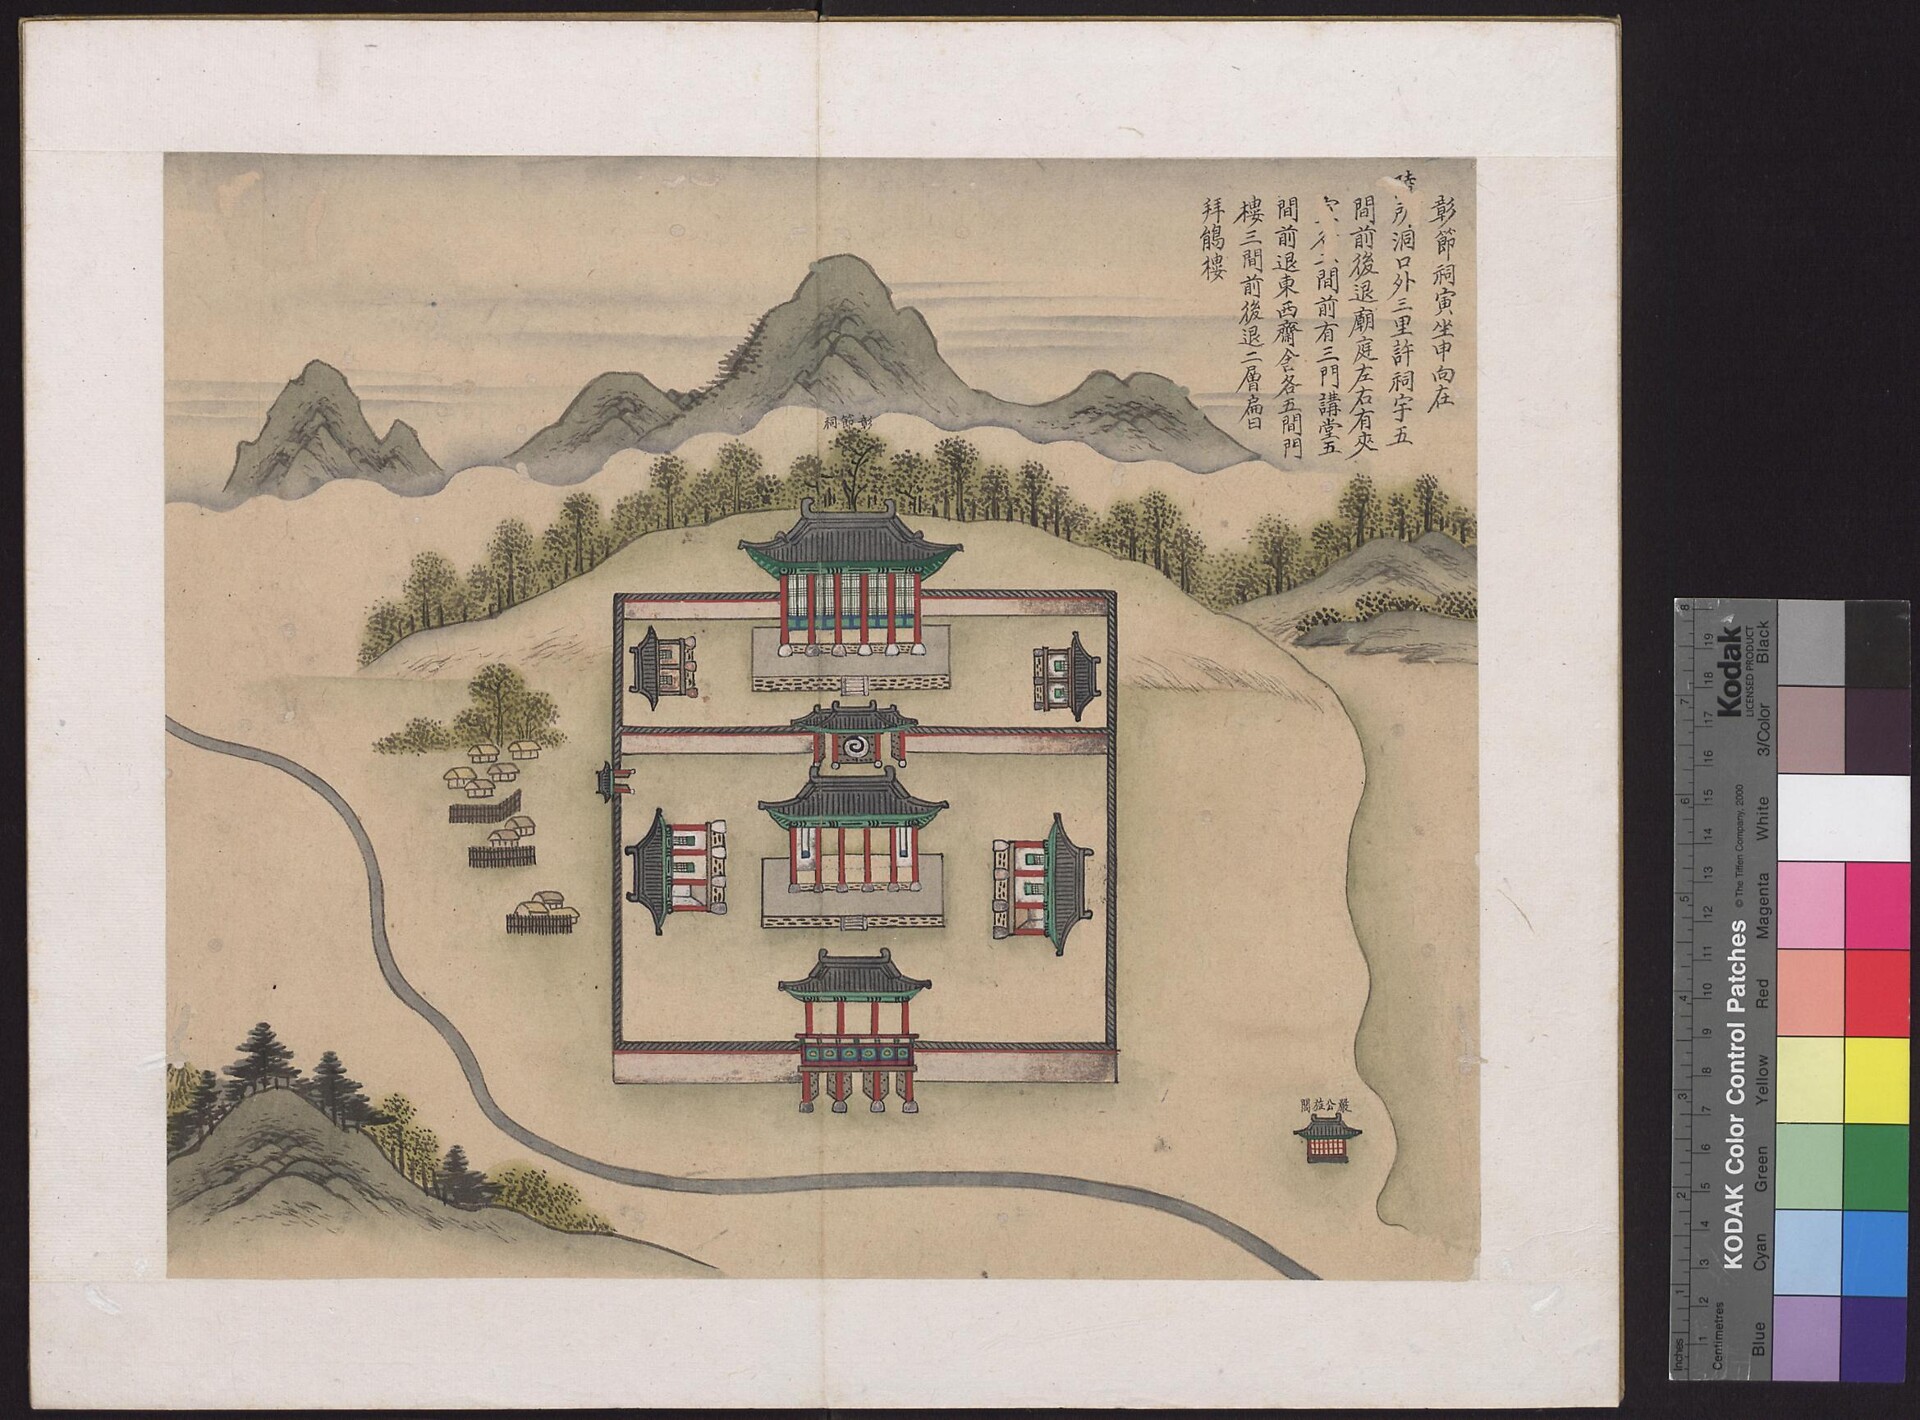 彰節祠寅坐申向在
陵
洞口外三里許祠宇五
間前後退廟庭左右有夾
間前有三門講堂五
間前退東西齋舍各五間門
樓三間前後退二層扁曰
拜鵑樓
彰節祠
嚴公旌閭
Kodak
LICENSED PRODUCT
KODAK Color Control Patches
© The Tiffen Company, 2000
Blue Cyan Green Yellow Red Magenta White 3/Color Black
Inches 1 2 3 4 5 6 7 8
Centimetres 1 2 3 4 5 6 7 8 9 10 11 12 13 14 15 16 17 18 19